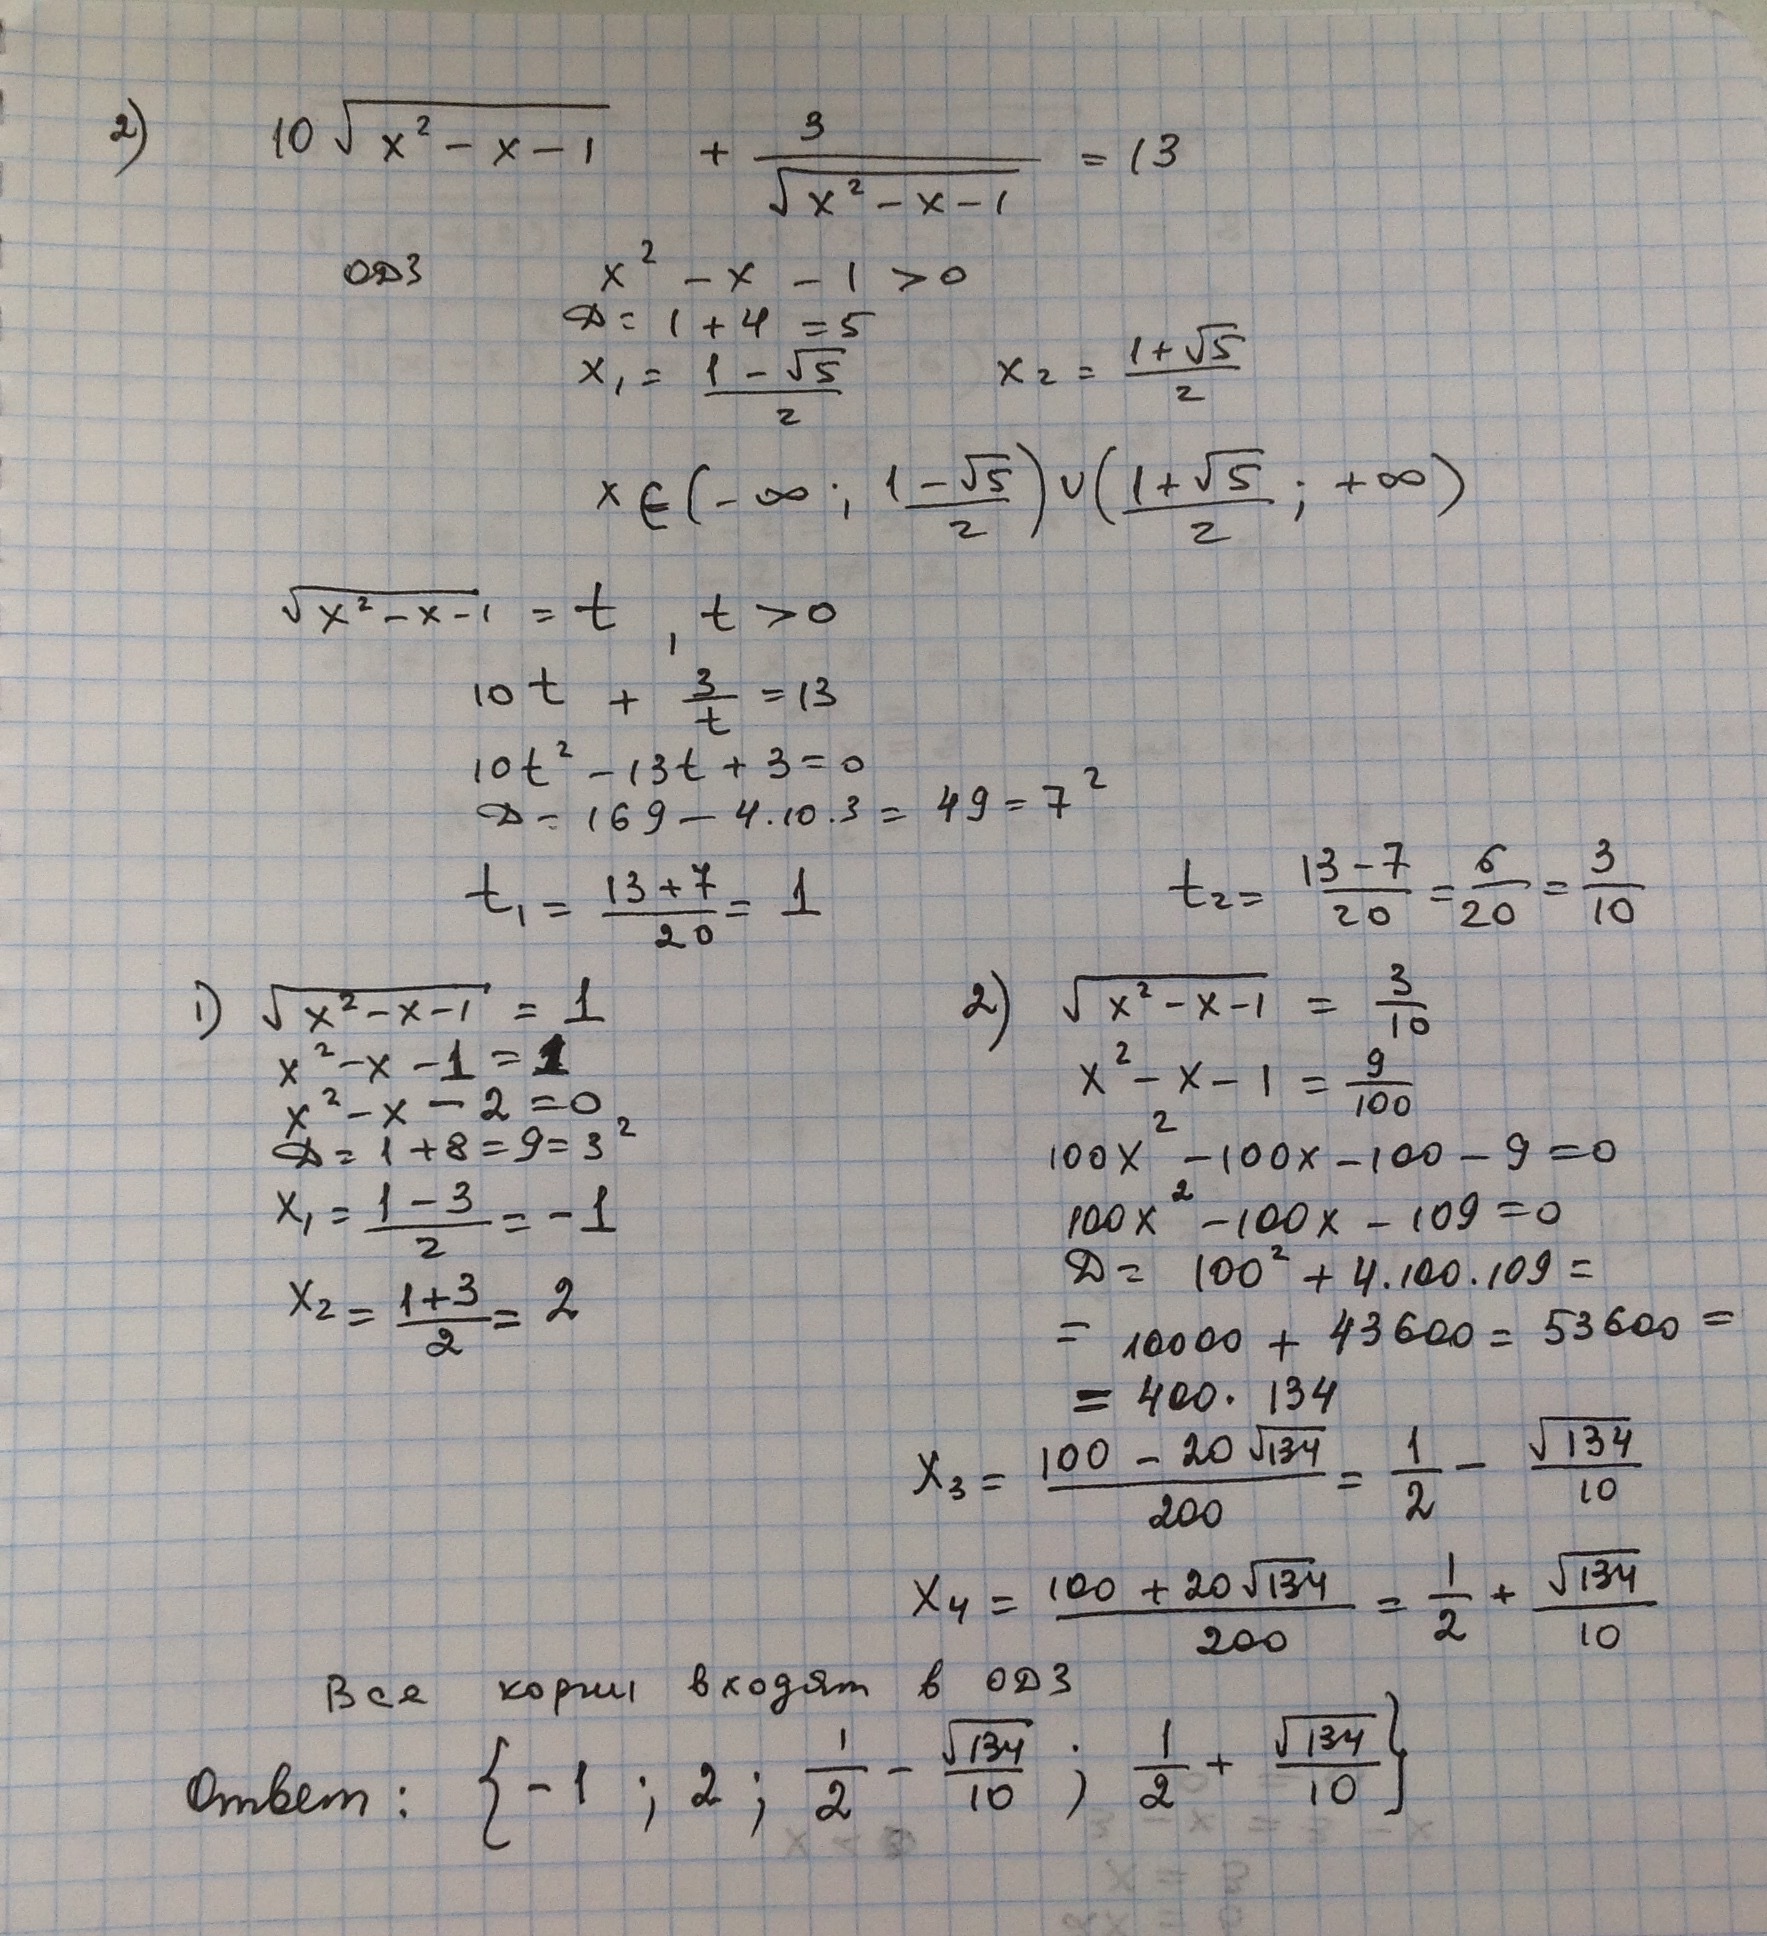 2) 10√(x² - x - 1) + 3/√(x² - x - 1) = 13
ОДЗ x² - x - 1 > 0
D = 1 + 4 = 5
x₁ = (1 - √5)/2 x₂ = (1 + √5)/2
x ∈ (-∞; (1 - √5)/2) ∪ ((1 + √5)/2; +∞)
√(x² - x - 1) = t, t > 0
10t + 3/t = 13
10t² - 13t + 3 = 0
D = 169 - 4·10·3 = 49 = 7²
t₁ = (13 + 7)/20 = 1 t₂ = (13 - 7)/20 = 6/20 = 3/10
1) √(x² - x - 1) = 1
x² - x - 1 = 1
x² - x - 2 = 0
D = 1 + 8 = 9 = 3²
x₁ = (1 - 3)/2 = -1
x₂ = (1 + 3)/2 = 2
2) √(x² - x - 1) = 3/10
x² - x - 1 = 9/100
100x² - 100x - 100 - 9 = 0
100x² - 100x - 109 = 0
D = 100² + 4·100·109 =
= 10000 + 43600 = 53600 =
= 400·134
x₃ = (100 - 20√134)/200 = 1/2 - √134/10
x₄ = (100 + 20√134)/200 = 1/2 + √134/10
Все корни входят в ОДЗ
Ответ: {-1; 2; 1/2 - √134/10; 1/2 + √134/10}